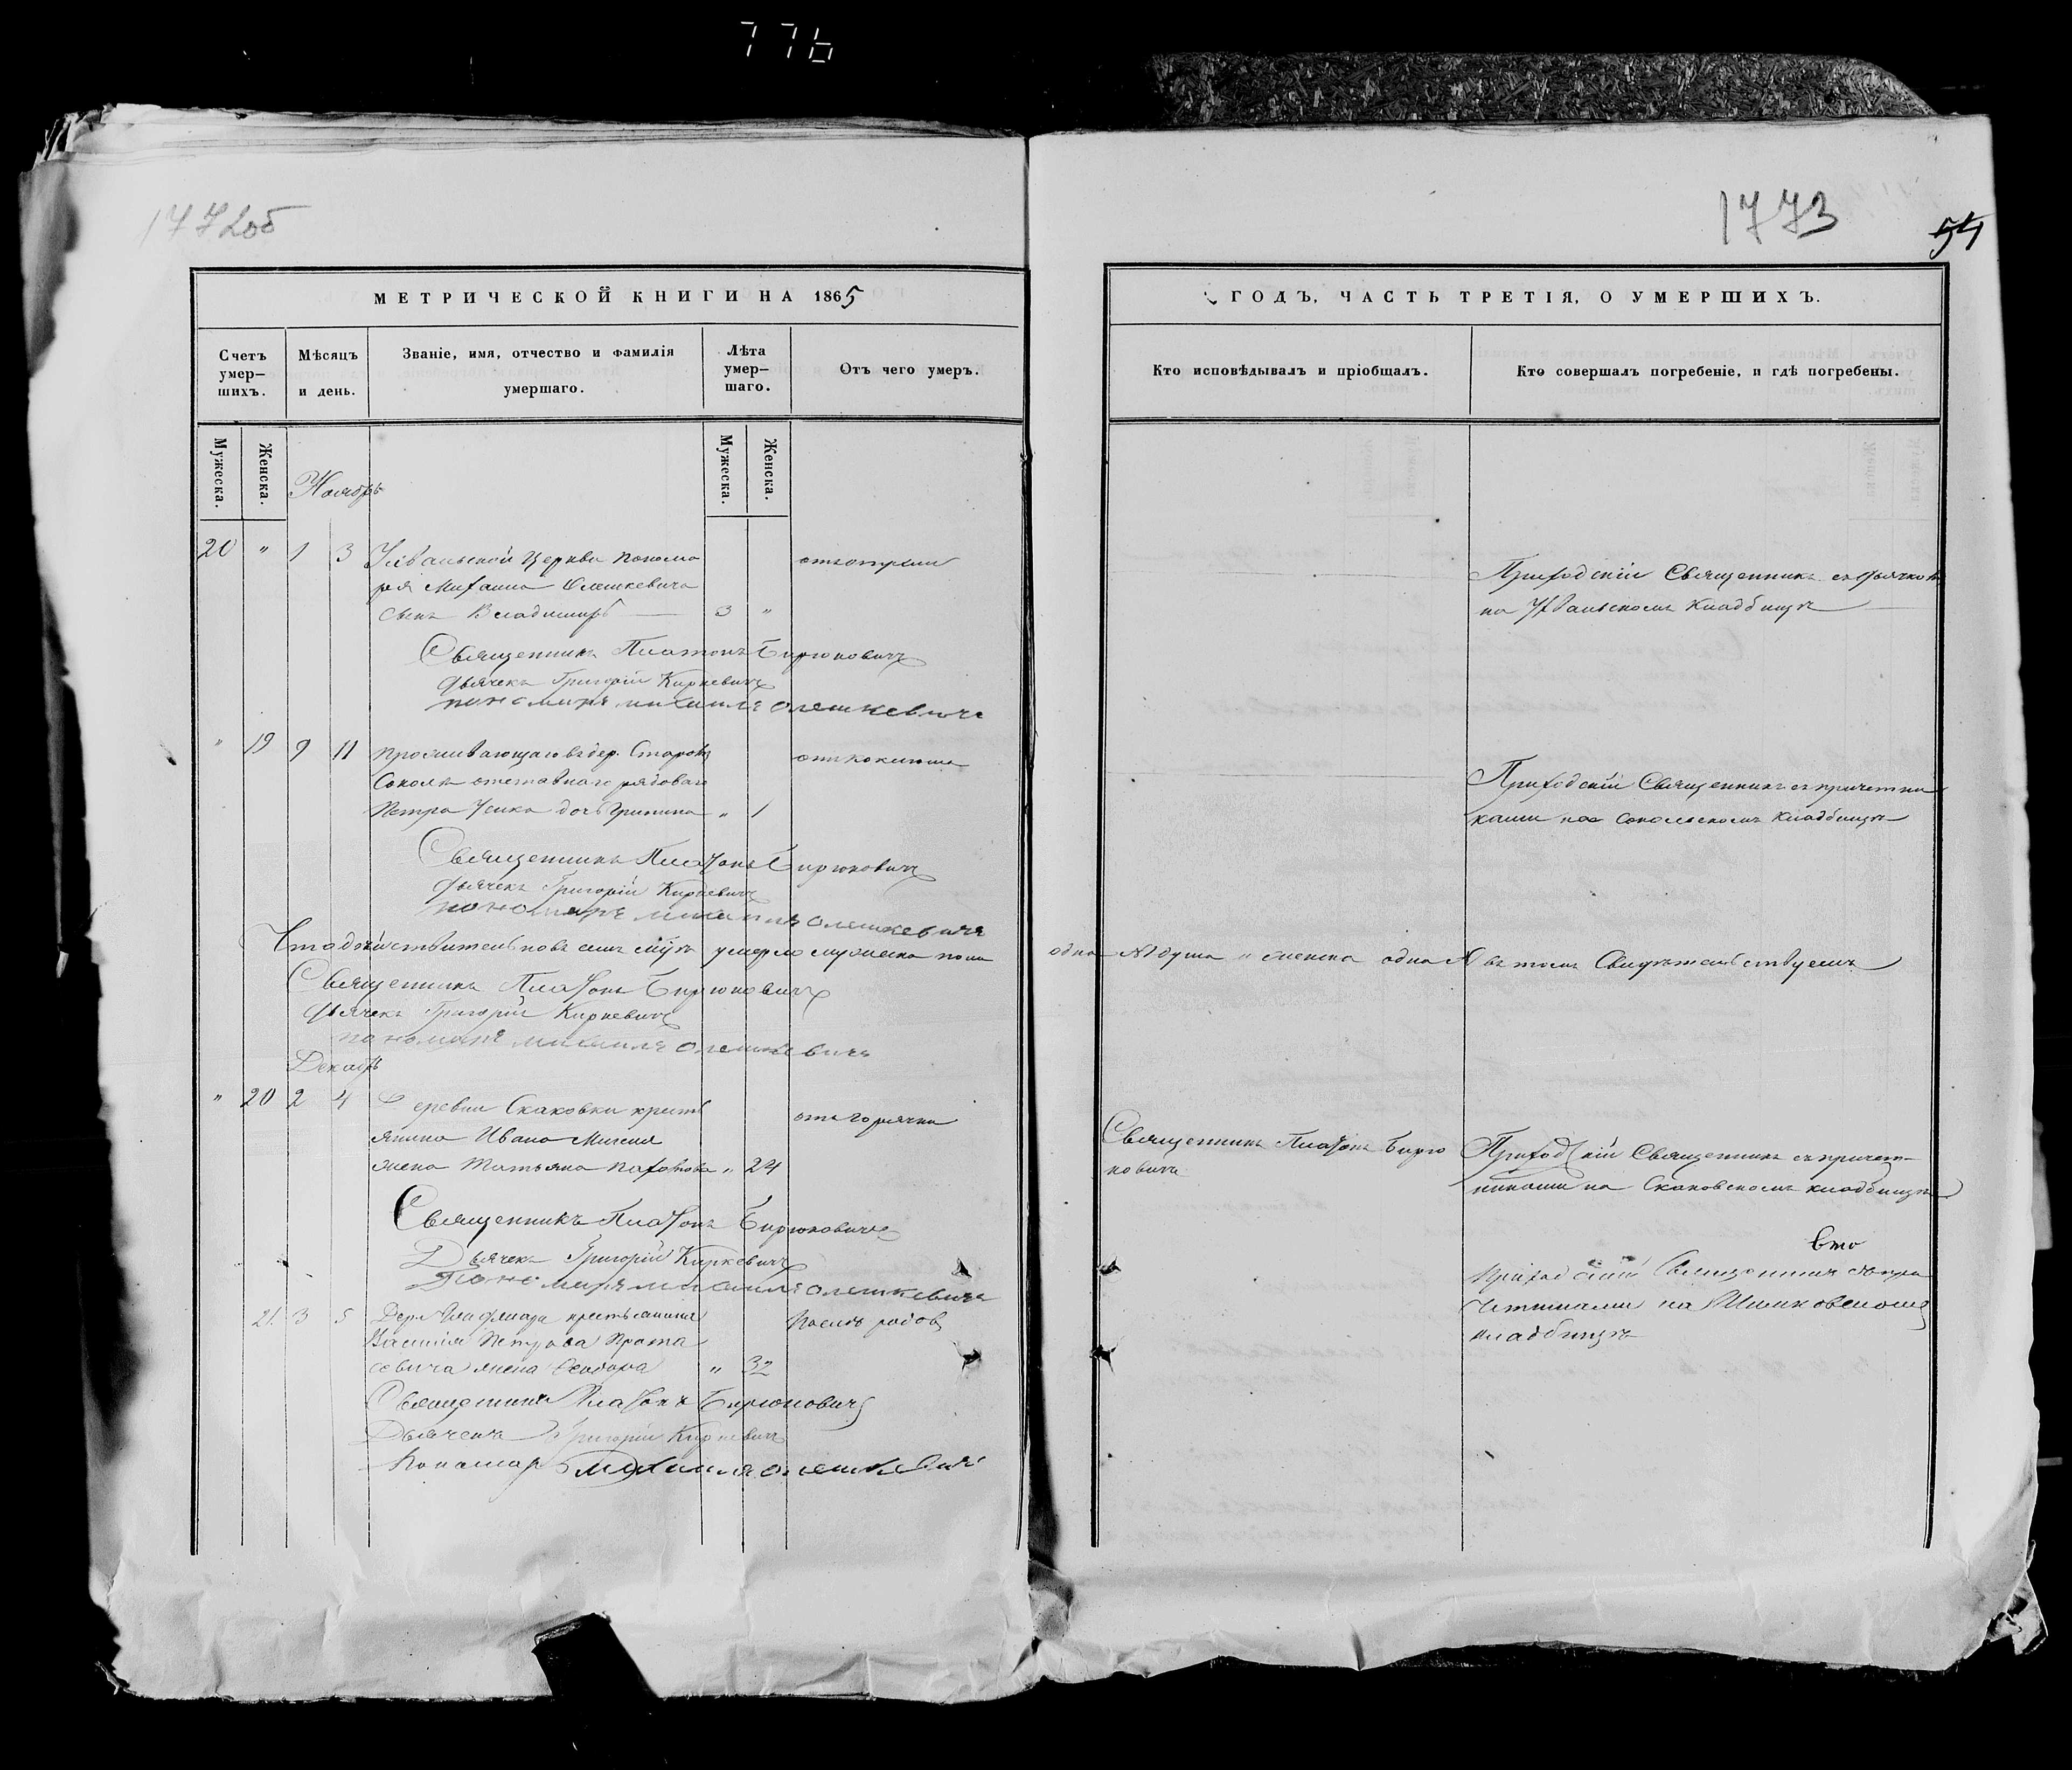 776
1772об
1773
54
МЕТРИЧЕСКОЙ КНИГИ НА 1865
ГОДЪ, ЧАСТЬ ТРЕТІЯ, О УМЕРШИХЪ.
Счетъ умер–шихъ.
Мѣсяцъ и день.
Званіе, имя, отчество и фамилія умершаго.
Лѣта умер–шаго.
Отъ чего умеръ.
Кто исповѣдывалъ и пріобщалъ.
Кто совершалъ погребеніе, и гдѣ погребены.
Мужеска.
Женска.
Мужеска.
Женска.
Ноябрь
20 " 1 3 Церкви понома
ря Михаила Олешкевича
сынъ Владимиръ 3 "
Приходскій Священникъ съ дьячкомъ
на кладбищѣ
Священникъ Платонъ Бирюковичъ
Дьячекъ Григорій Киркевичъ
пономарь михаилъ олешкевичъ
" 19 9 11 проживающаго въ дер. Старомъ
Соколѣ отставнаго рядоваго
Петра Усика дочь " 1
отъ коклюша
Приходскій Священникъ съ причетни
ками на Сокольскомъ кладбищѣ
Священникъ Платонъ Бирюковичъ
Дьячекъ Григорій Киркевичъ
пономарь михаилъ олешкевичъ
Что дѣйствительно въ семъ м-цѣ умерло мужеска пола одна №1 душа и женска одна №1 въ томъ Свидѣтельствуемъ
Священникъ Платонъ Бирюковичъ
Дьячекъ Григорій Киркевичъ
пономарь михаилъ олешкевичъ
Декабрь
" 20 2 4 Деревни Скаковки кресть
янина Ивана
жена Татьяна " 24
отъ горячки
Священникъ Платонъ Бирю
ковичъ
Приходскій Священникъ съ причет–
никами на Скаковскомъ кладбищѣ
Священникъ Платонъ Бирюковичъ
Дьячекъ Григорій Киркевичъ
Пономарь михаилъ олешкевичъ
21 3 5 Дер. крестьянина
Василія Петрова Прота
севича жена " 32
Послѣ родовъ
Приходскій Священникъ съ при
четниками на
кладбищѣ
Священникъ Платонъ Бирюковичъ
Дьячекъ Григорій Киркевичъ
Пономарь Михаилъ олешкевичъ